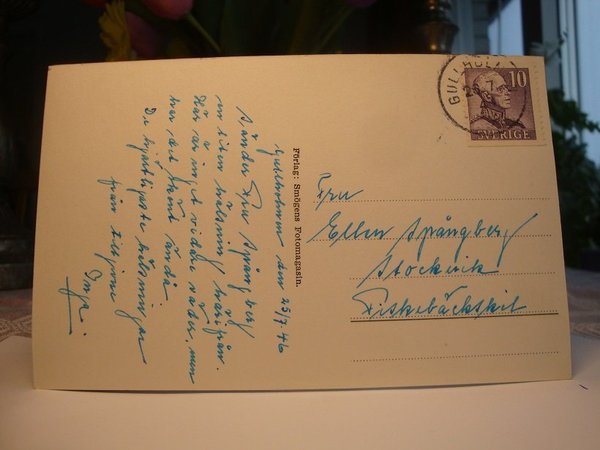 Gullholmen den 25/7.46
Sänder Fru Spångberg
en liten hälsning härifrån.
Här är inget vidare väder, men
har det skönt ändå.
De hjärtligaste hälsningar
från tillgivne
Inga.
Förlag: Smögens Fotomagasin.
GULLHOL
10
SVERIGE
Fru
Ellen Spångberg
Stockvik
Fiskebäckskil